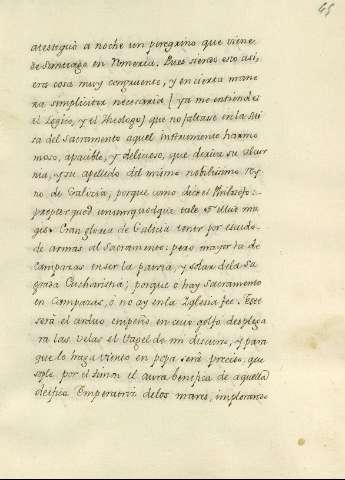 45
atestiguò a noche un peregrino que viene
de Santiago en Romeria. Pues siendo esto asi,
era cosa muy congruente, y en cierta mane
ra simpliciter necesaria (ya me entiende
el Logico, y el Theologo) que no faltase en la Mi
sa del Sacramento aquel instrumento harmo
nioso, apacible, y delicioso, que deriva su alcur
nia, y su apellido del mismo nobilisimo Rey
no de Galizia; porque como dice el Philosofo:
propter quod unumquodque tale et illud ma
gis. Gran gloria de Galicia tener por escudo
de armas al Sacramento: pero mayor la de
Campazas en ser la patria, y solar de la Sa
grada Eucharistia; porque o hay Sacramento
en Campazas, ò no ay en la Iglesia fee. Este
serà el arduo empeño en cuio golfo desplega
ra las velas el vagel de mi discurso, y para
que lo haga viento en popa serà preciso, que
sople por el timon el aura benefica de aquella
deifica Emperatriz de los mares, implorando